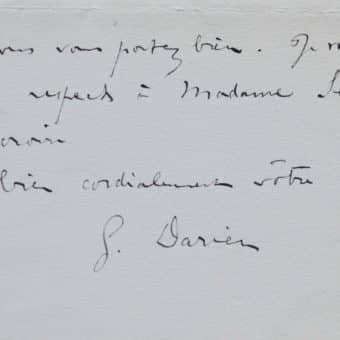 vous vous portez bien. Je v
respects à Madame Se
croire
bien cordialement vôtre
G. Darien